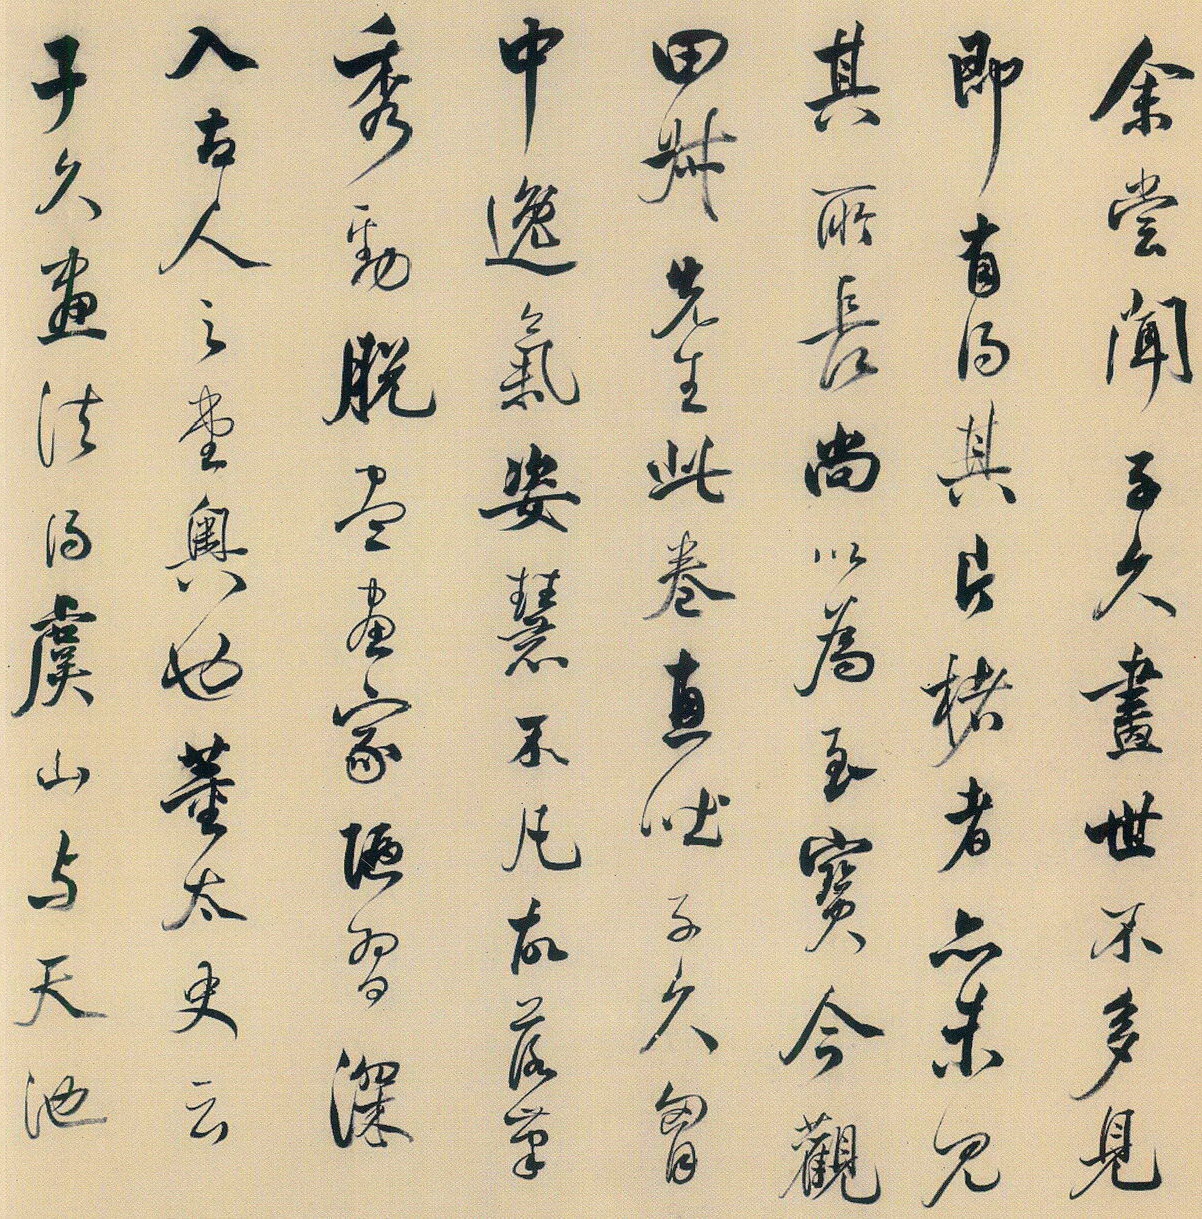 余尝闻子久畫世不多見
即有得其片楮者亦未见
其所長尚以為至寶今觀
田叔先生此卷直從子久胷
中逸氣姿慧不凡故落筆
秀勁脱尽畫家陋習深
入古人之堂奥也董太史云
子久畫法得虞山与天池